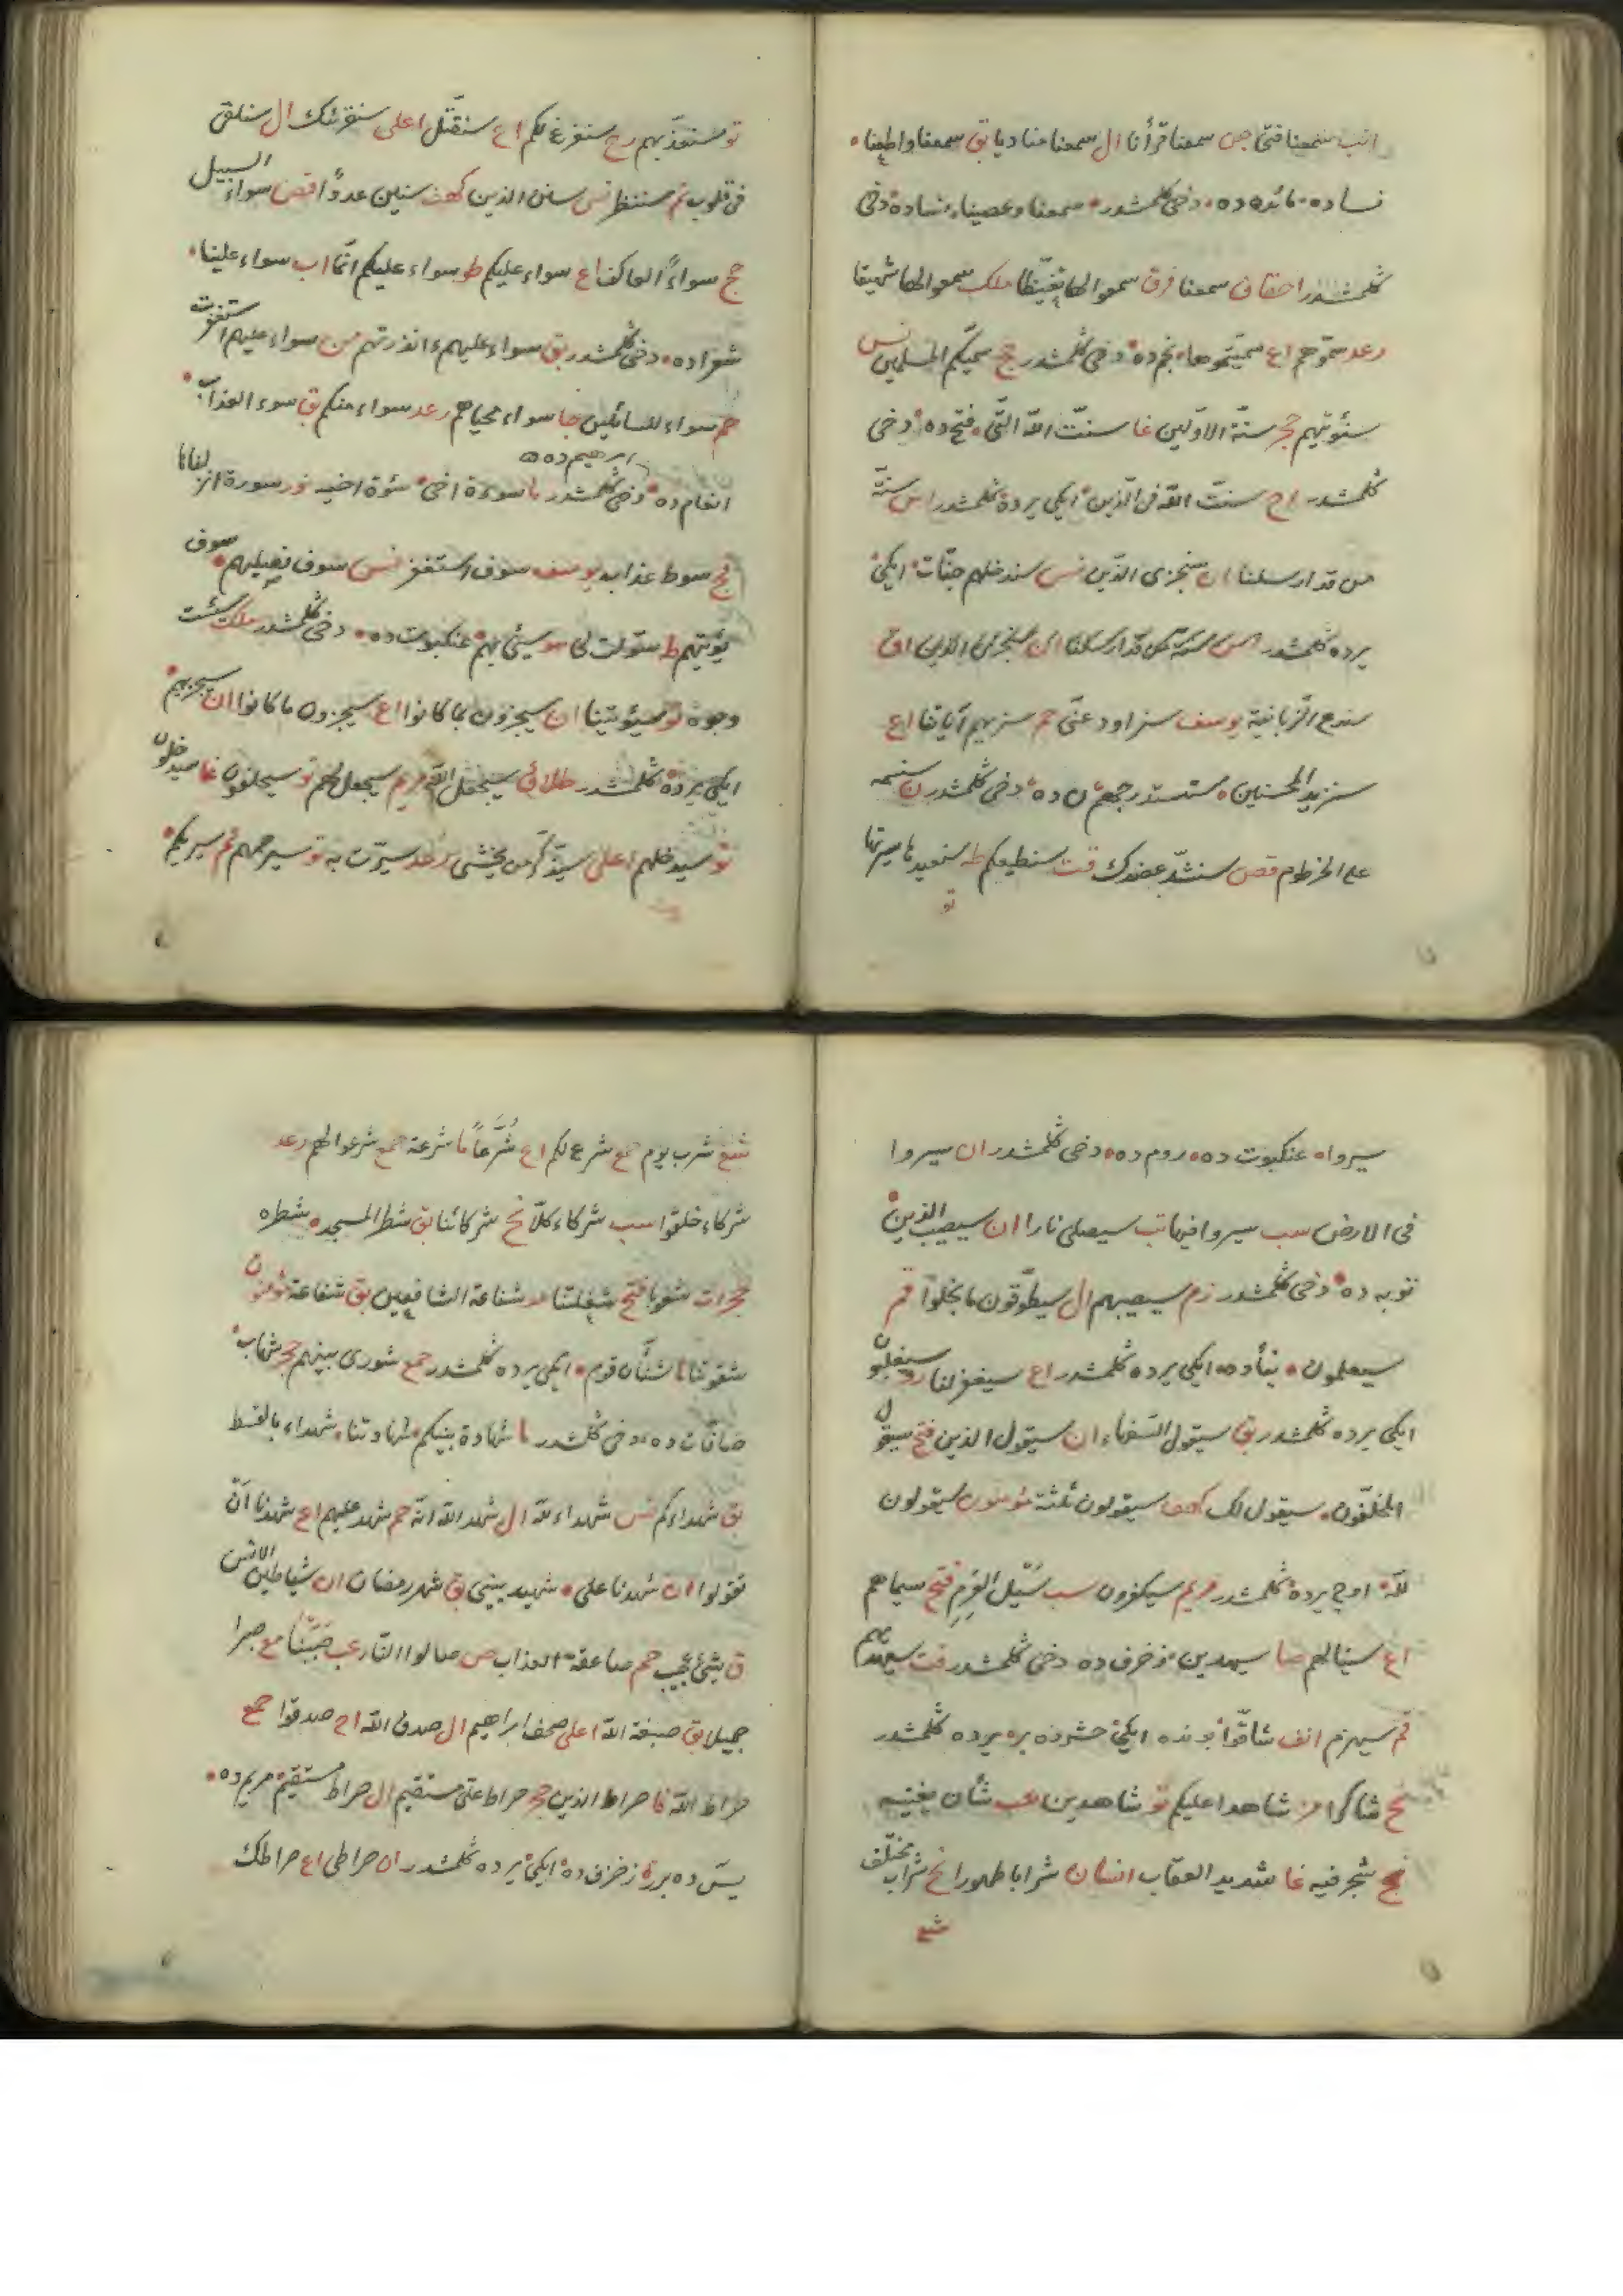 انب سمعنا فتى جن سمعنا قرأنا ال سمعنا مناديا بق سمعنا واطعنا
نساده مائده ده دخى كلمشدر سمعنا وعصينا نساده دخى
كلمشدر احقاف سمعنا فرق سمعوا لها تغيّظا ملك سمعوا لها شهيقا
رعد سمّوهم اع سمّيتموها نجم ده دخى كلمشدر حج سمّيكم المسلمين نس
سنؤتيهم حجر سنّة الاوّلين غا سنّت اللّه الّتى فتح ده دخى
كلمشدر اح سنّت اللّه فى الّذين ايكى يرده كلمشدر اس سنّة
من قد ارسلنا ان سنجزى الّذين نس سندخلهم جنّات ايكى
يرده كلمشدر اس سنة من قد ارسلنا ان سنجزى الذين اق
سندع الزبانية يوسف سنراود عنه حم سنريهم آياتنا اع
سنزيد المحسنين سنستدرجهم ن ده دخى كلمشدر ن سنسمه
على الخرطوم قصص سنشدّ عضدك قت سنطيعكم طه سنعيدها سيرتها
تو
تو سنعذّبهم رح سنفرغ لكم اع سنقتّل اعلى سنقرئك ال سنلقى
فى قلوب نم سننظر نس سنن الذين كهف سنين عددًا قص سواء السبيل
حج سواءً العاكف اع سواء عليكم ط سواء عليكم انّما اب سواء علينا
شعراده دخى كلمشدر بق سواء عليهم ءانذرتهم من سواء عليهم استغفرت
حم سواء للسائلين جا سواء محياهم رعد سواء منكم بق سوء العذاب
ابرهيم ده
انعام ده دخى كلمشدر ما سوءة اخى سوءة اخيه نور سورة انزلناها
فج سوط عذاب يوسف سوف استغفر نس سوف نصليهم سوف
يؤتيهم ط سوّلت لى هو سيئ بهم عنكبوت ده دخى كلمشدر ملك سيئت
وجوه تو سيؤتينا ان سيجزون بما كانوا اع سيجزون ما كانوا ان سيجزيهم
ايكى يرده كلمشدر طلاق سيجعل اللّه مريم سيجعل لهم تو سيحلفون غا سيدخلون
تو سيدخلهم اعلى سيذّكّر من يخشى رعد سيرّت به تو سيرحمهم نم سيريكم
سيروا عنكبوت ده روم ده دخى كلمشدر ان سيروا
فى الارض سب سيروا فيها تب سيصلى نارا ان سيصيب الذين
توبه ده دخى كلمشدر زم سيصيبهم ال سيطوّقون ما بخلوا قم
سيعلمون نبأده ايكى يرده كلمشدر اع سيغفر لنا رو سيغلبون
ايكى يرده كلمشدر بق سيقول السّفهاء ان سيقول الذين فتح سيقول
المخلّفون سيقول لك كهف سيقولون ثلثة مؤمنون سيقولون
للّه اوچ يرده كلمشدر مريم سيكفرون سب سيل العرم فتح سيماهم
اع سينالهم صا سيهدين زخرف ده دخى كلمشدر قت سيهديهم
قم سيهزم انف شاقّوا بونده ايكى حشرده بره يرده كلمشدر
نح شاكرا مز شاهدا عليكم تو شاهدين عب شأن يغنيه
نح شجر فيه غا شديد العقاب انسان شرابا طهورا نح شراب مختلف
شع
شع شرب يوم جمع شرع لكم اع شُرّعاً ما شرعة جمع شرعوا لهم رعد
شركاء خلقوا سب شركاء كلّا نح شركائنا بق شطر المسجد شطره
حجرات شعوبا فتح شغلتنا مد شفاعة الشافعين بق شفاعة مؤمنون
شقوتنا ما شنآن قوم ايكى يرده كلمشدر جمع شورى بينهم حجر شهاب
صافّات ده دخى كلمشدر ما شهادة بينكم شهادتنا شهداء بالقسط
بق شهداءكم نس شهداء للّه ال شهد اللّه انّه حم شهد عليهم اع شهدنا ان
تقولوا ان شهدنا على شهيد بينى بق شهر رمضان ان شياطين الانس
ق شئ عجيب حم صاعقة العذاب ص صالوا النّار عب صببنا مع صبرا
جميلا بق صبغة اللّه اعلى صحف ابراهيم ال صدق اللّه اح صدقوا جمع
صراط اللّه فا صراط الذين حجر صراط علىّ مستقيم ال صراط مستقيم مريم ده
يسّ ده برره زخرف ده ايكى يرده كلمشدر ان صراطى اع صراطك